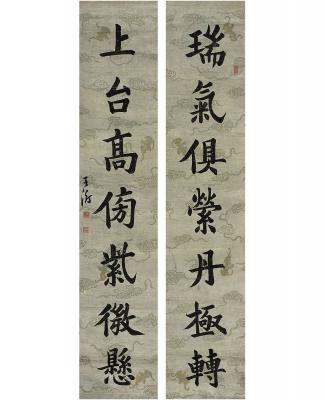 瑞氣俱縈丹極轉
上台高傍紫微懸